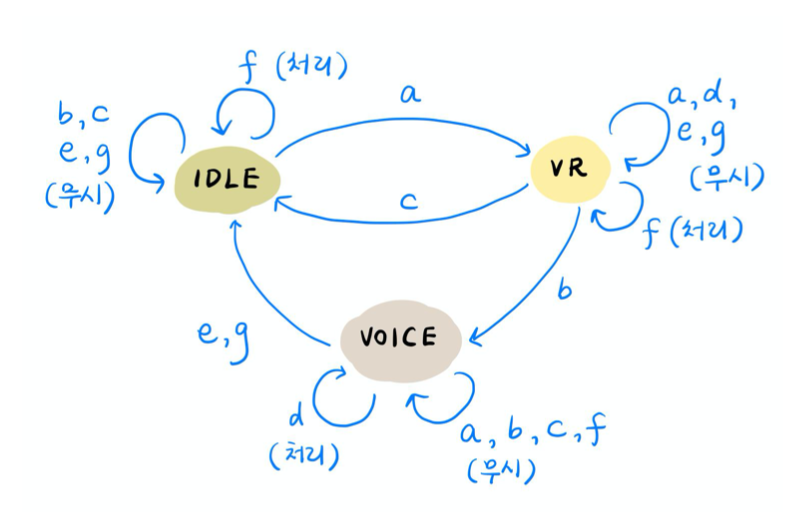 f (처리)
a
b, c
e, g
(무시)
IDLE
a, d,
e, g
(무시)
VR
c
f (처리)
b
e, g
VOICE
d
(처리)
a, b, c, f
(무시)